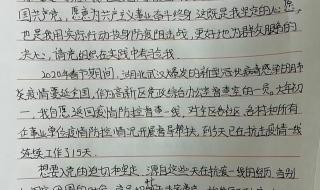 国共产党，愿意为共产主义事业奋斗终身，这既是我坚定的心愿，
也是我用实际行动投身防疫阻击战，更好地为群众服务的
决心，请党组织在实践中考验我。
2020年春节期间，湖北武汉爆发的新型冠状病毒感染的肺
炎疫情蔓延全国，作为高新区党政综合办主管督查的一员，大年初
一，我自愿返回疫情防控督查一线，对全区各社区、各村和所有
企事业单位疫情防控情况开展督导帮扶，到今天已在抗击疫情一线
连续工作了15天。
想要入党的迫切和坚定，源自这些天在抗疫一线的经历，当别